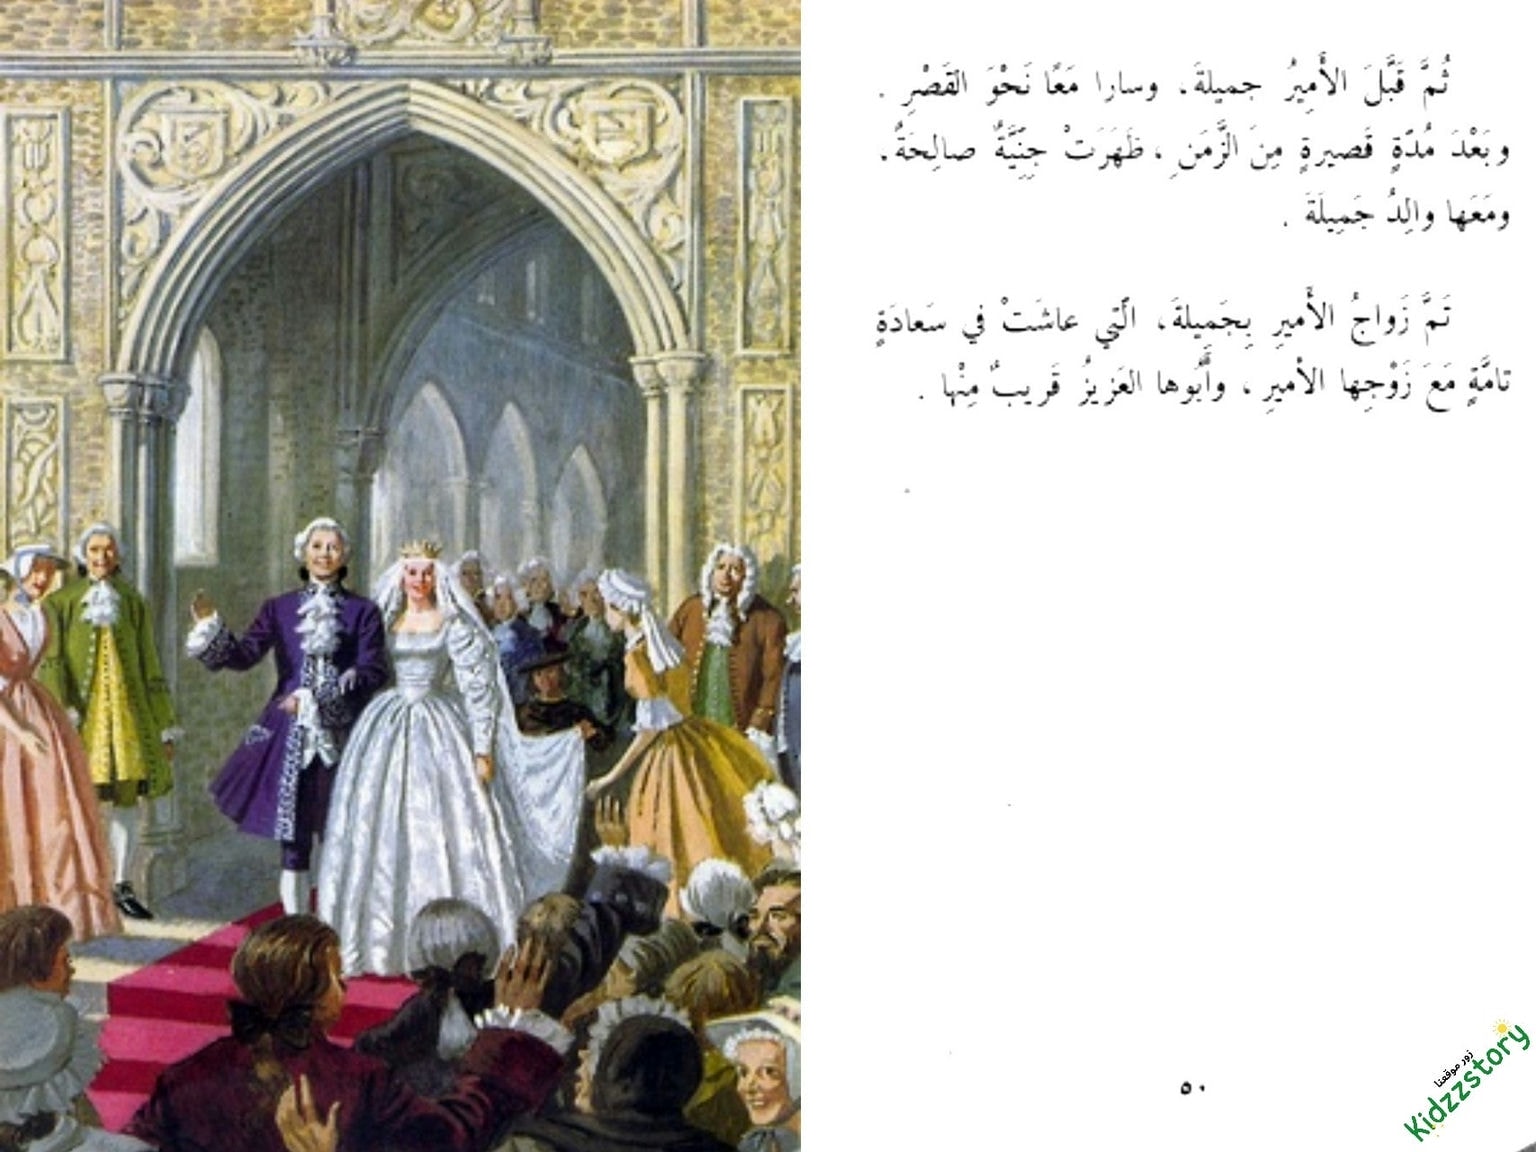 ثُمَّ قَبَّلَ الأَمِيرُ جميلةَ، وسارا مَعًا نَحْوَ القَصْرِ .
وبَعْدَ مُدّةٍ قَصيرةٍ مِنَ الزَّمَنِ ، ظَهَرَتْ جِنِّيَّةٌ صالِحَةٌ،
ومَعَها والِدُ جَمِيلَةَ .
تَمَّ زَواجُ الأَميرِ بِجَمِيلةَ، الّتي عاشَتْ في سَعادَةٍ
تامَّةٍ مَعَ زَوْجِها الأميرِ ، وأَبُوها العَزيزُ قَريبٌ مِنْها .
٥٠
زور موقعنا
Kidzzstory